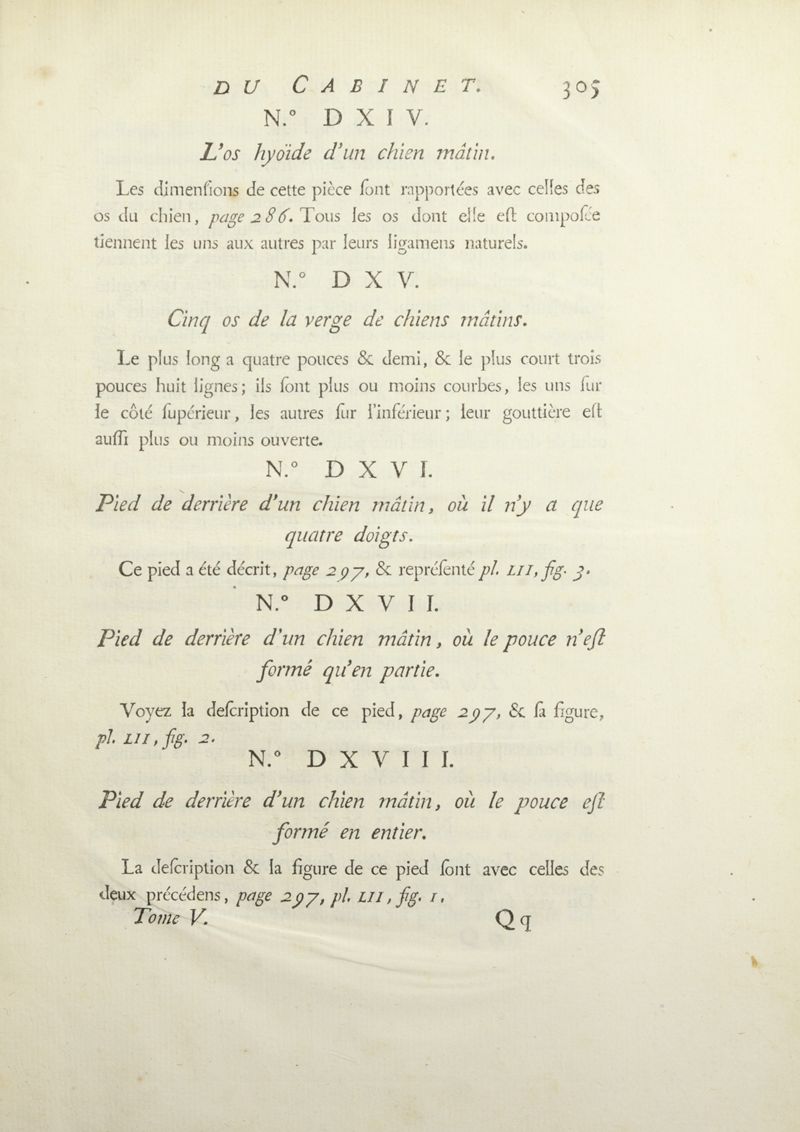 DU CABINET. 305
N.° DXIV.
L'os hyoïde d'un chien mâtin.
Les dimenſions de cette pièce ſont rapportées avec celles des
os du chien, page 286. Tous les os dont elle eſt compoſée
tiennent les uns aux autres par leurs ligamens naturels.
N.° DXV.
Cinq os de la verge de chiens mâtins.
Le plus long a quatre pouces & demi, & le plus court trois
pouces huit lignes; ils ſont plus ou moins courbes, les uns ſur
le côté ſupérieur, les autres ſur l'inférieur; leur gouttière eſt
auſſi plus ou moins ouverte.
N.° DXVI.
Pied de derrière d'un chien mâtin, où il n'y a que
quatre doigts.
Ce pied a été décrit, page 297, & repréſenté pl. LII, fig. 3.
N.° DXVII.
Pied de derrière d'un chien mâtin, où le pouce n'eſt
formé qu'en partie.
Voyez la deſcription de ce pied, page 297, & ſa figure,
pl. LII, fig. 2.
N.° DXVIII.
Pied de derrière d'un chien mâtin, où le pouce eſt
formé en entier.
La deſcription & la figure de ce pied ſont avec celles des
deux précédens, page 297, pl. LII, fig. 1.
Tome V. Qq